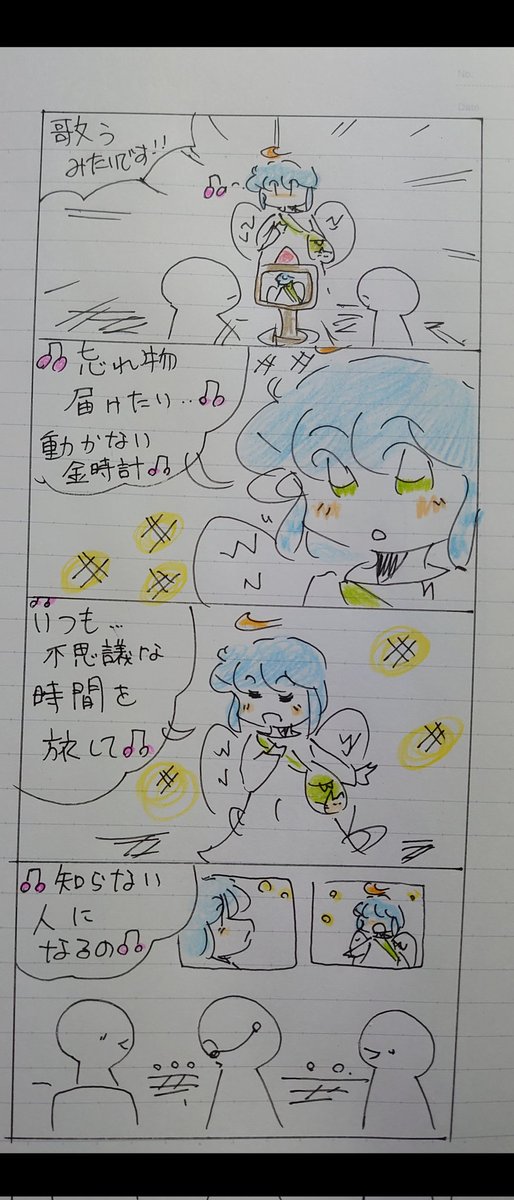 No.
Date
歌う
みたいです!!
忘れ物
届けたい..
動かない
金時計
いつも...
不思議な
時間を
旅して
知らない
人に
なるの